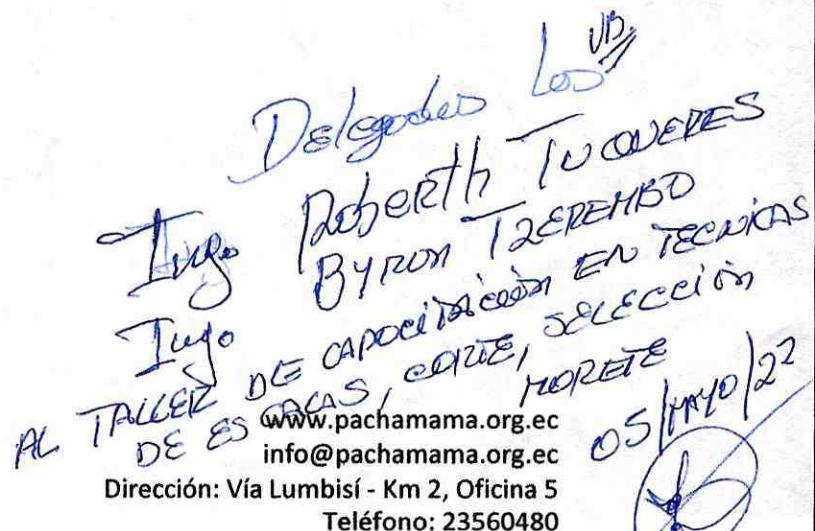 VB.
Delegados Los
Ingo Roberth Tucoueres
Ingo Byron Tzerembo
AL TALLER DE CAPACITACIÓN EN TECNICAS
DE ESCALAS, CORTE, SELECCIÓN
MORETE
05/MAYO/22
www.pachamama.org.ec
info@pachamama.org.ec
Dirección: Vía Lumbisí - Km 2, Oficina 5
Teléfono: 23560480